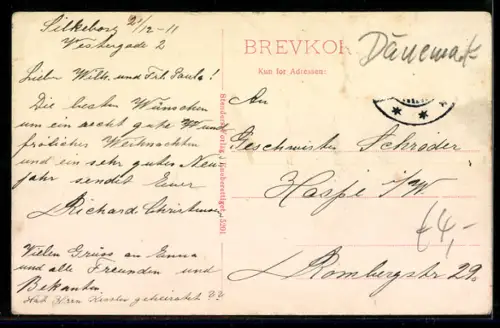 Silkeborg 21/12-11
Vestergade 2
Lieber Willi. und Frl. Paula!
Die besten Wünschen
um ein recht gute und
fröliches Weihnachten
und ein sehr gutes Neu
jahr sendet Euer
Richard Christensen
Vielen Gruss an Emma
und alle Freunden und
Bekanten.
Hat Herr Kessler geheiratet ??
Stenders Forlag. Eneberettiget. 5291
BREVKOR
Dänemark
Kun for Adressen:
An
Geschwister Schröder
Haspe i/W.
£4,-
Rombergstr 29.